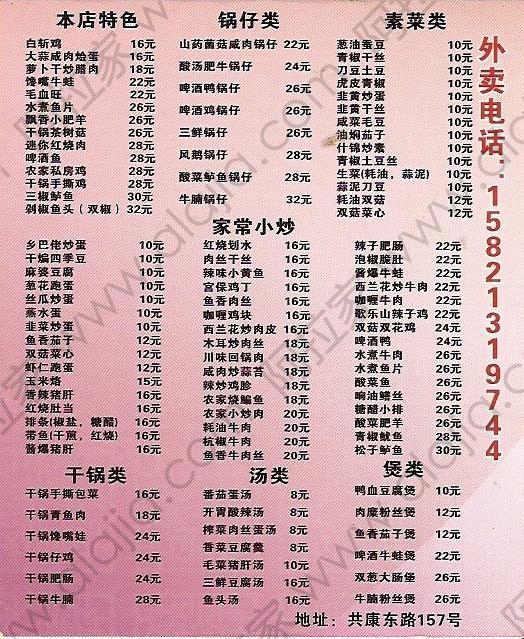 本店特色
白斩鸡 16元
大蒜咸肉烩蛋 16元
萝卜干炒腊肉 18元
馋嘴牛蛙 22元
毛血旺 22元
水煮鱼片 26元
飘香小肥羊 26元
干锅茶树菇 26元
迷你红烧肉 28元
啤酒鱼 28元
农家私房鸡 28元
干锅手撕鸡 28元
三椒鲈鱼 30元
剁椒鱼头（双椒）32元
锅仔类
山药菌菇咸肉锅仔 22元
酸汤肥牛锅仔 24元
啤酒鸭锅仔 26元
啤酒鸡锅仔 26元
三鲜锅仔 28元
风鹅锅仔 28元
酸菜鲈鱼锅仔 28元
牛腩锅仔 32元
素菜类
葱油蚕豆 10元
青椒干丝 10元
刀豆土豆 10元
虎皮青椒 10元
韭黄炒蛋 10元
韭黄干丝 10元
咸菜毛豆 10元
油焖茄子 10元
什锦炒素 10元
青椒土豆丝 10元
生菜(耗油，蒜泥) 10元
蒜泥刀豆 10元
耗油双菇 12元
双菇菜心 12元
外卖电话：15821319744
家常小炒
乡巴佬炒蛋 10元
干煸四季豆 10元
麻婆豆腐 10元
葱花跑蛋 10元
丝瓜炒蛋 10元
蒸水蛋 10元
韭菜炒蛋 10元
鱼香茄子 12元
双菇菜心 12元
虾仁跑蛋 12元
玉米烙 15元
香辣猪肝 16元
红烧肚当 16元
排条(椒盐，糖醋) 16元
带鱼(干煎，红烧) 16元
酱爆猪肝 16元
红烧划水 16元
肉丝干丝 16元
辣味小黄鱼 16元
宫保鸡丁 16元
鱼香肉丝 16元
咖喱鸡块 16元
西兰花炒肉皮 16元
木耳炒肉丝 18元
川味回锅肉 18元
咸肉炒蒜苔 18元
辣炒鸡胗 18元
农家烧鳊鱼 18元
农家小炒肉 20元
耗油牛肉 20元
杭椒牛肉 20元
鱼香牛肉丝 20元
辣子肥肠 22元
泡椒腰肚 22元
酱爆牛蛙 22元
西兰花炒牛肉 22元
咖喱牛肉 22元
歌乐山辣子鸡 22元
双菇双花鸡 24元
啤酒鸭 24元
水煮牛肉 26元
水煮鱼片 26元
酸菜鱼 26元
响油鳝丝 26元
糖醋小排 26元
酸菜肥羊 26元
青椒鱿鱼 28元
松子鲈鱼 30元
干锅类
干锅手撕包菜 16元
干锅青鱼肉 18元
干锅馋嘴蛙 24元
干锅仔鸡 24元
干锅肥肠 24元
干锅牛腩 28元
汤类
番茄蛋汤 8元
开胃酸辣汤 8元
榨菜肉丝蛋汤 8元
香菜豆腐羹 8元
毛菜猪肝汤 10元
三鲜豆腐汤 16元
鱼头汤 16元
煲类
鸭血豆腐煲 10元
肉糜粉丝煲 12元
鱼香茄子煲 12元
啤酒牛蛙煲 22元
双葱大肠煲 26元
牛腩粉丝煲 26元
地址：共康东路157号
阿拉家 www.alajia.com